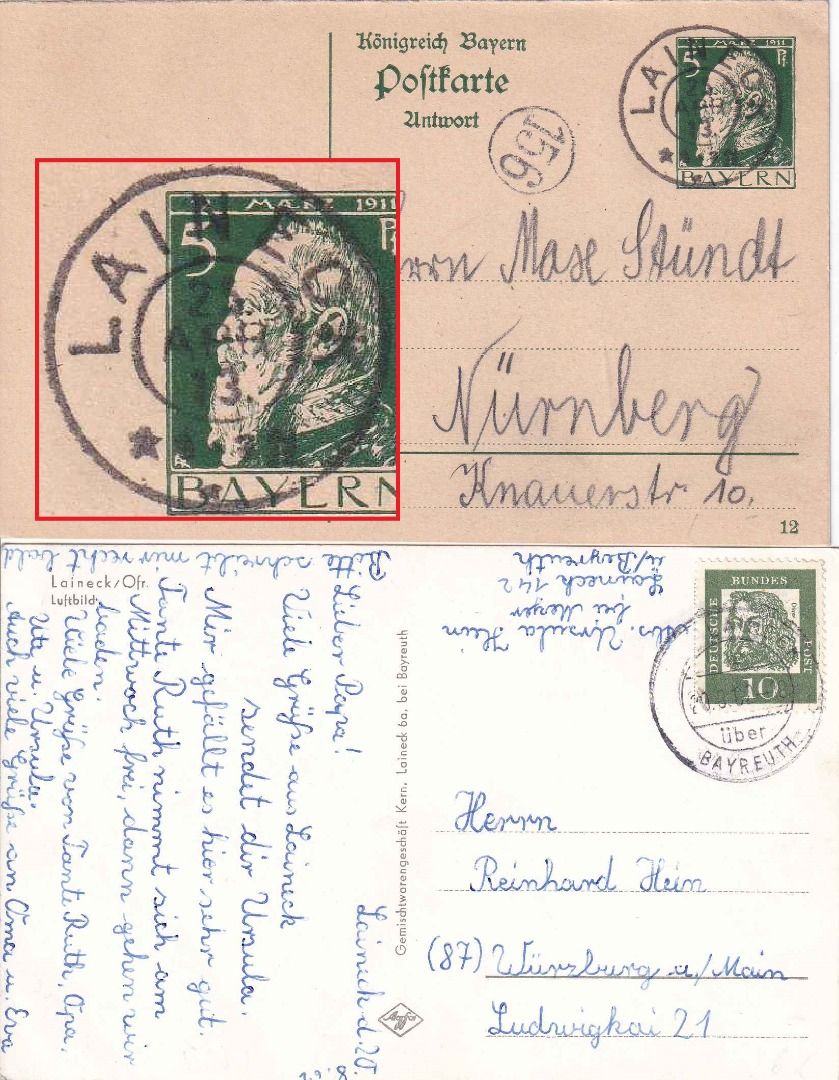 Königreich Bayern
Postkarte
Antwort
156
MAERZ 1911
5 Pf
BAYERN
LAINECK
APR
13
MAERZ 1911
5
BAYERN
LAIN
APR
13
Max Stündt
Nürnberg
Knauerstr 10.
12
Laineck/Ofr.
Luftbild
Bitte schreibt mir recht bald
Abs. Ursula Hein
bei Meyer
Laineck 142
ü/Bayreuth
Laineck d. 20.
Lieber Papa!
Viele Grüße aus Laineck
sendet dir Ursula.
Mir gefällt es hier sehr gut.
Tante Ruth nimmt sich am
Mittwoch frei, dann gehen wir
baden.
Viele Grüße von Tante Ruth, Opa,
Ute u. Ursula.
Auch viele Grüße an Oma u. Eva
Gemischtwarengeschäft Kern, Laineck 6a, bei Bayreuth
Agfa
DEUTSCHE BUNDESPOST
10
über
BAYREUTH
Herrn
Reinhard Hein
(87) Würzburg a/Main
Ludwigkai 21